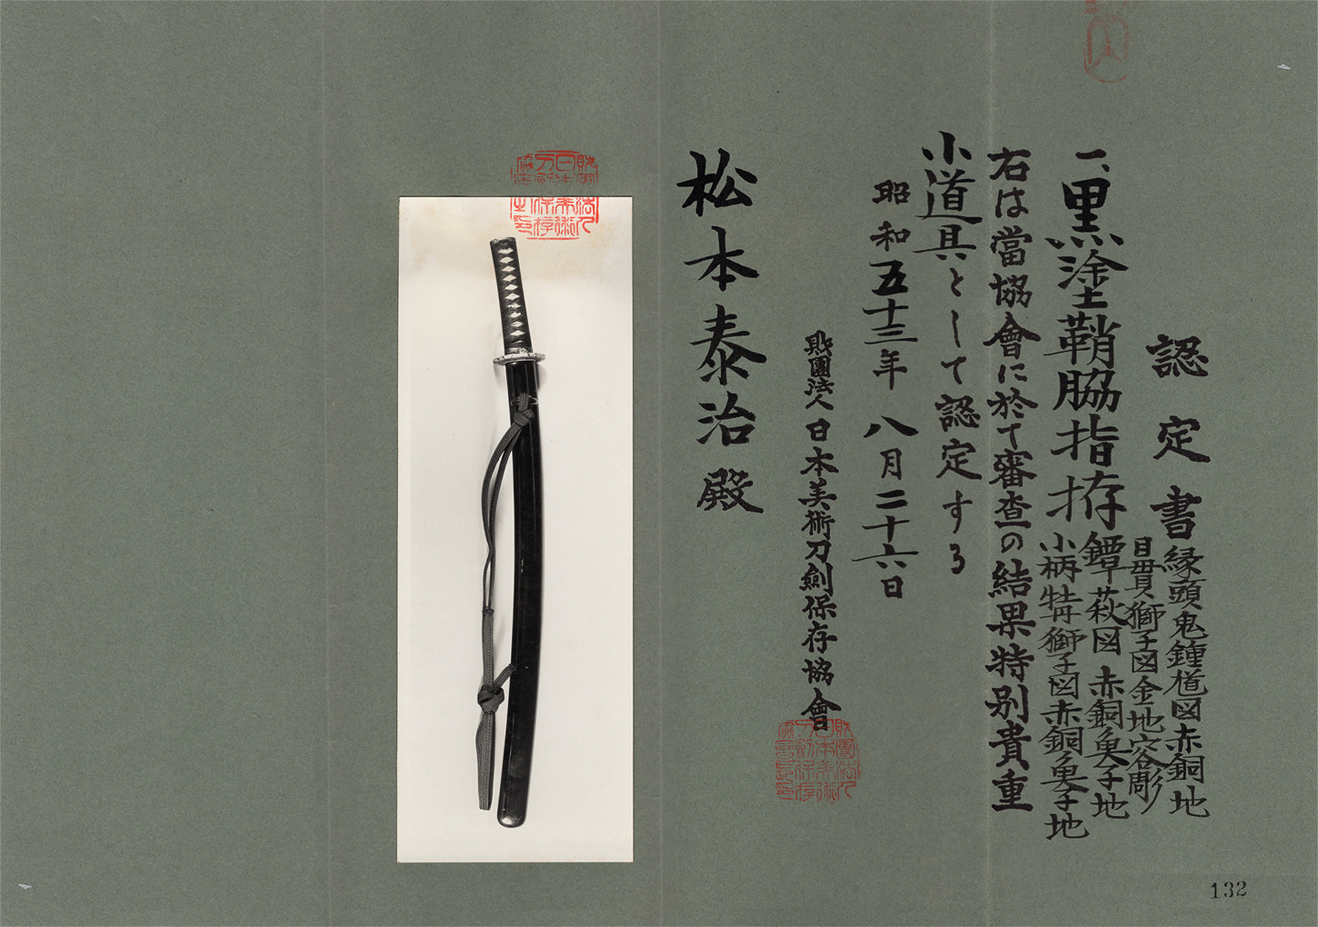 認定書
一、黒塗鞘脇指拵
縁頭鬼鍾馗図赤銅地
目貫獅子図金地容彫
鐔萩図 赤銅魚子地
小柄牡丹獅子図赤銅魚子地
右は當協會に於て審査の結果特別貴重
小道具として認定する
昭和五十三年 八月二十六日
財團法人日本美術刀劍保存協會
松本泰治殿
132